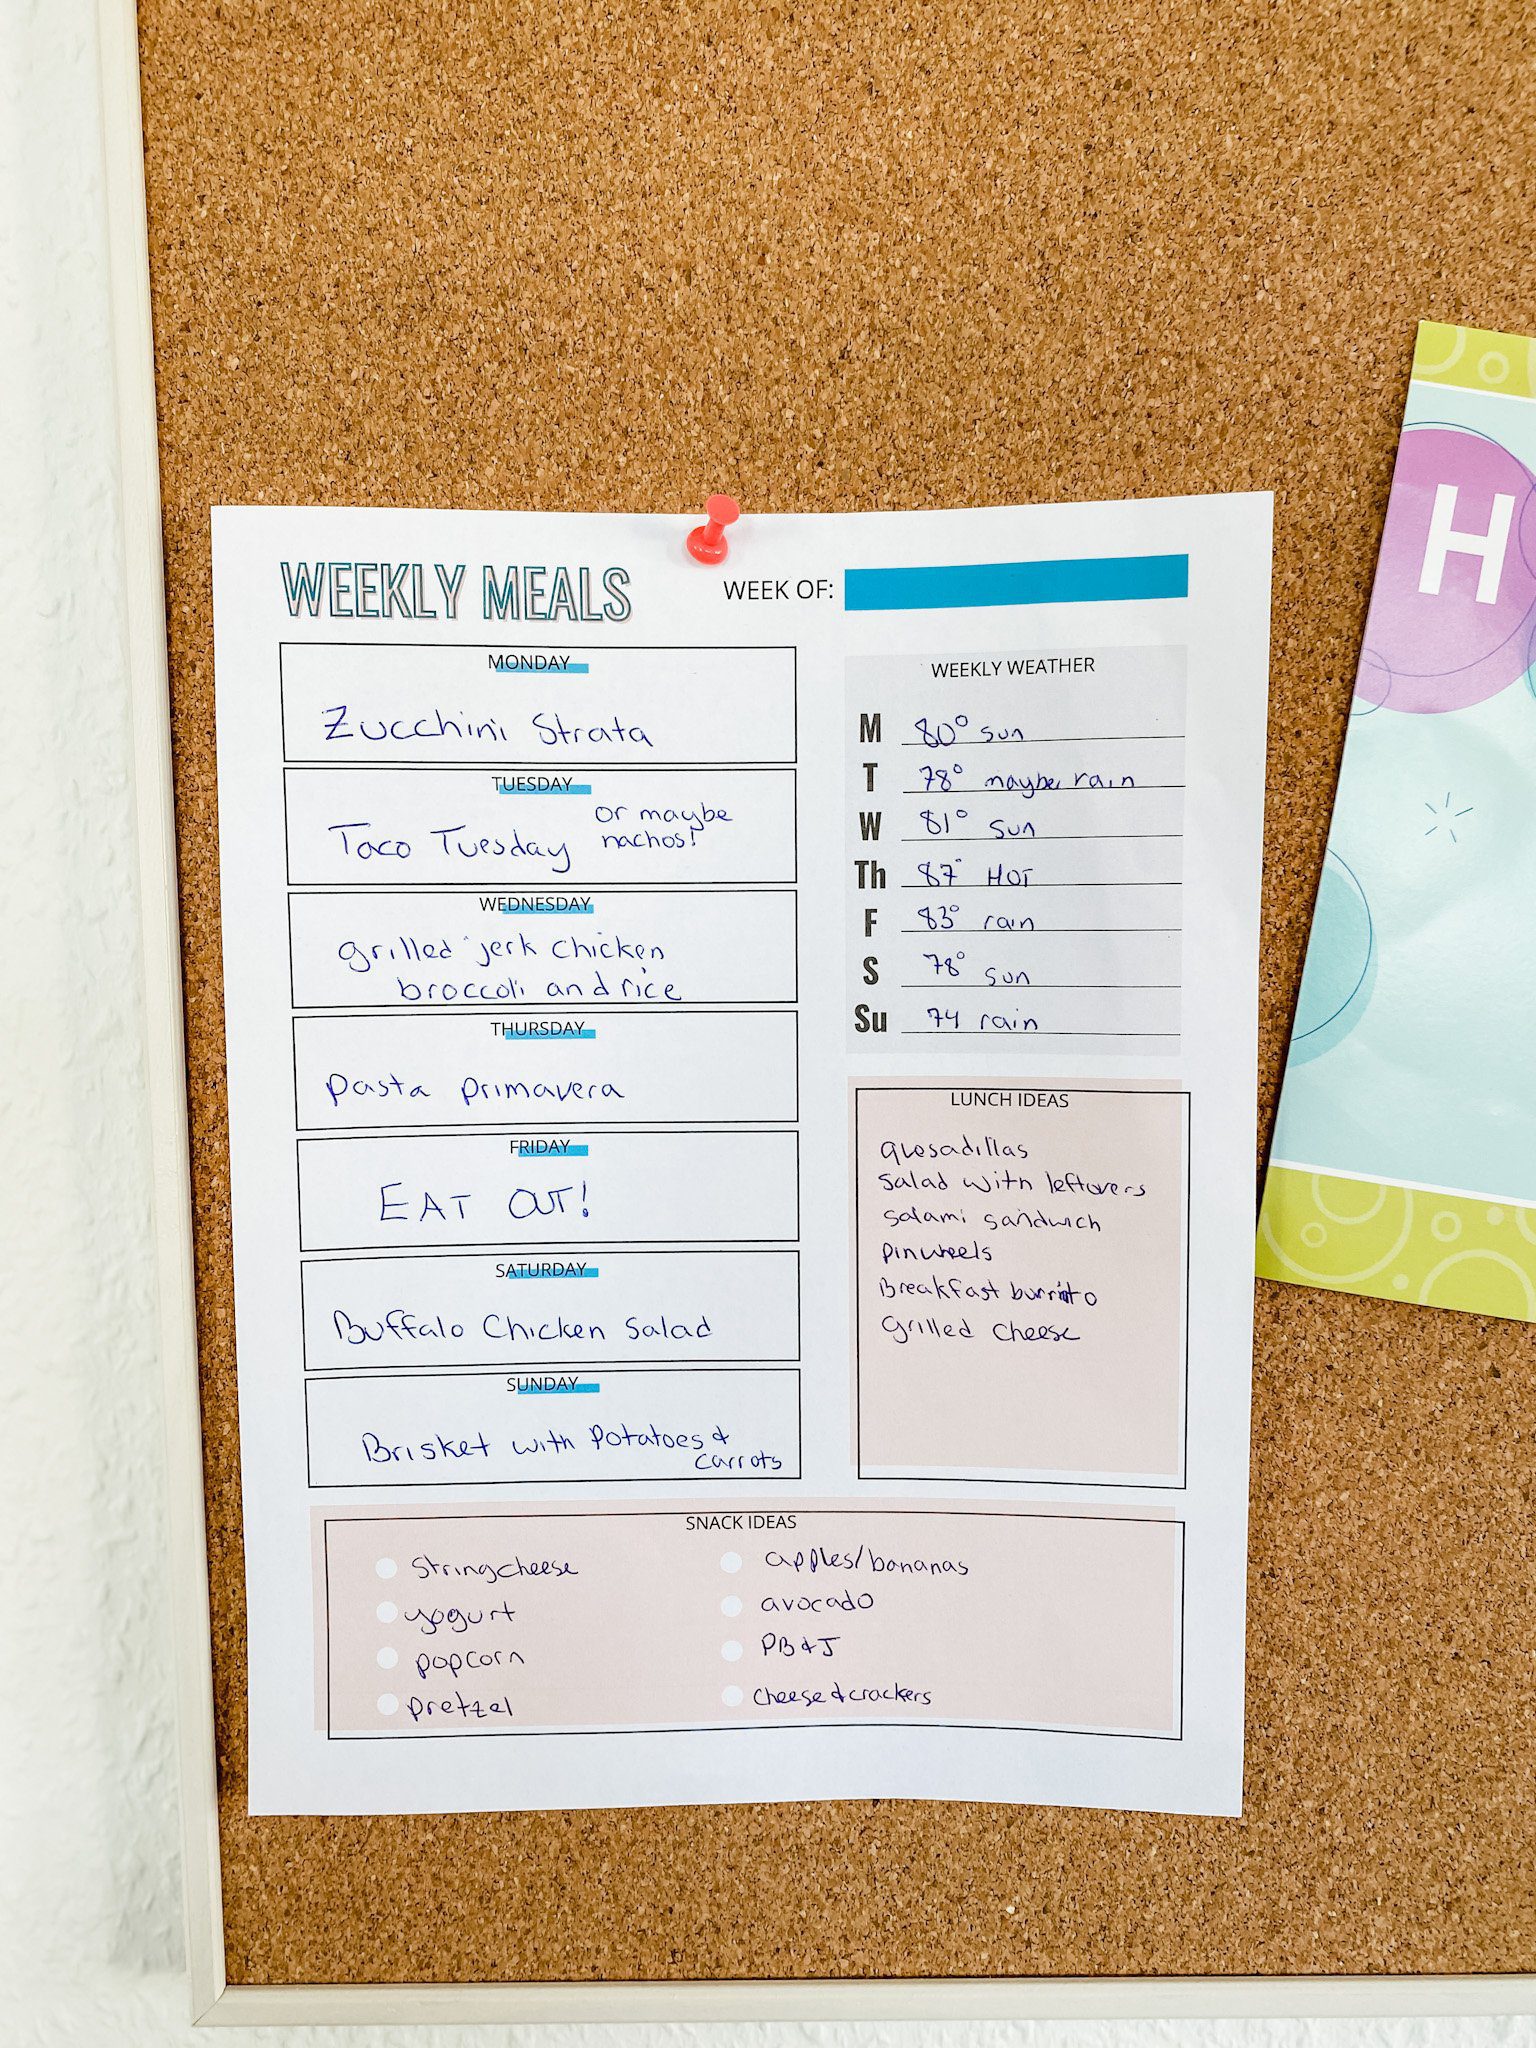 WEEKLY MEALS
WEEK OF:
MONDAY
Zucchini Strata
TUESDAY
Taco Tuesday or maybe
nachos!
WEDNESDAY
grilled jerk chicken
broccoli and rice
THURSDAY
Pasta primavera
FRIDAY
EAT OUT!
SATURDAY
Buffalo Chicken Salad
SUNDAY
Brisket with Potatoes &
carrots
WEEKLY WEATHER
M 80° sun
T 78° maybe rain
W 81° sun
Th 87° HOT
F 83° rain
S 78° sun
Su 74 rain
LUNCH IDEAS
quesadillas
salad with leftovers
salami sandwich
pinwheels
Breakfast burrito
Grilled cheese
SNACK IDEAS
String cheese
yogurt
popcorn
pretzel
apples/bananas
avocado
PB & J
cheese & crackers
H